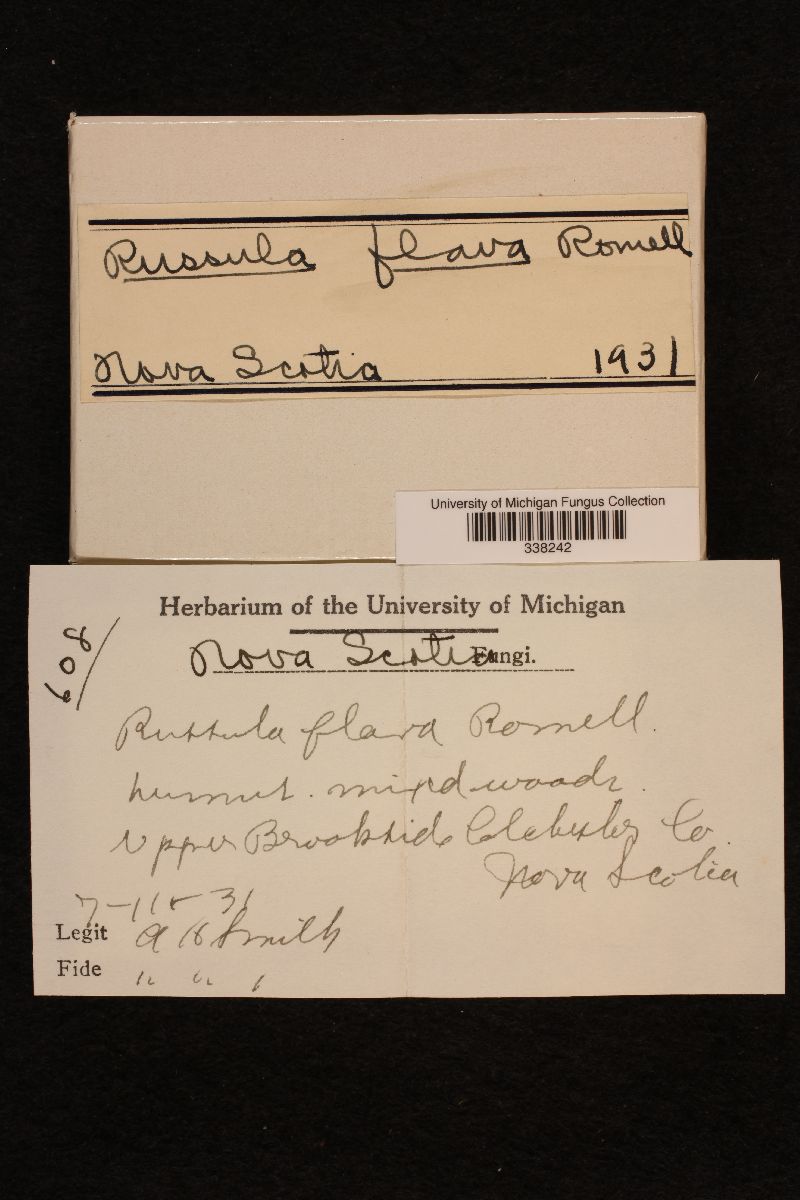 Russula flava Romell
Nova Scotia 1931
University of Michigan Fungus Collection
338242
Herbarium of the University of Michigan
608
Nova Scotia Fungi.
Russula flava Romell.
humus. mixed woods.
Upper Brookside Colchester Co.
Nova Scotia
31
Legit A H Smith
Fide " " "